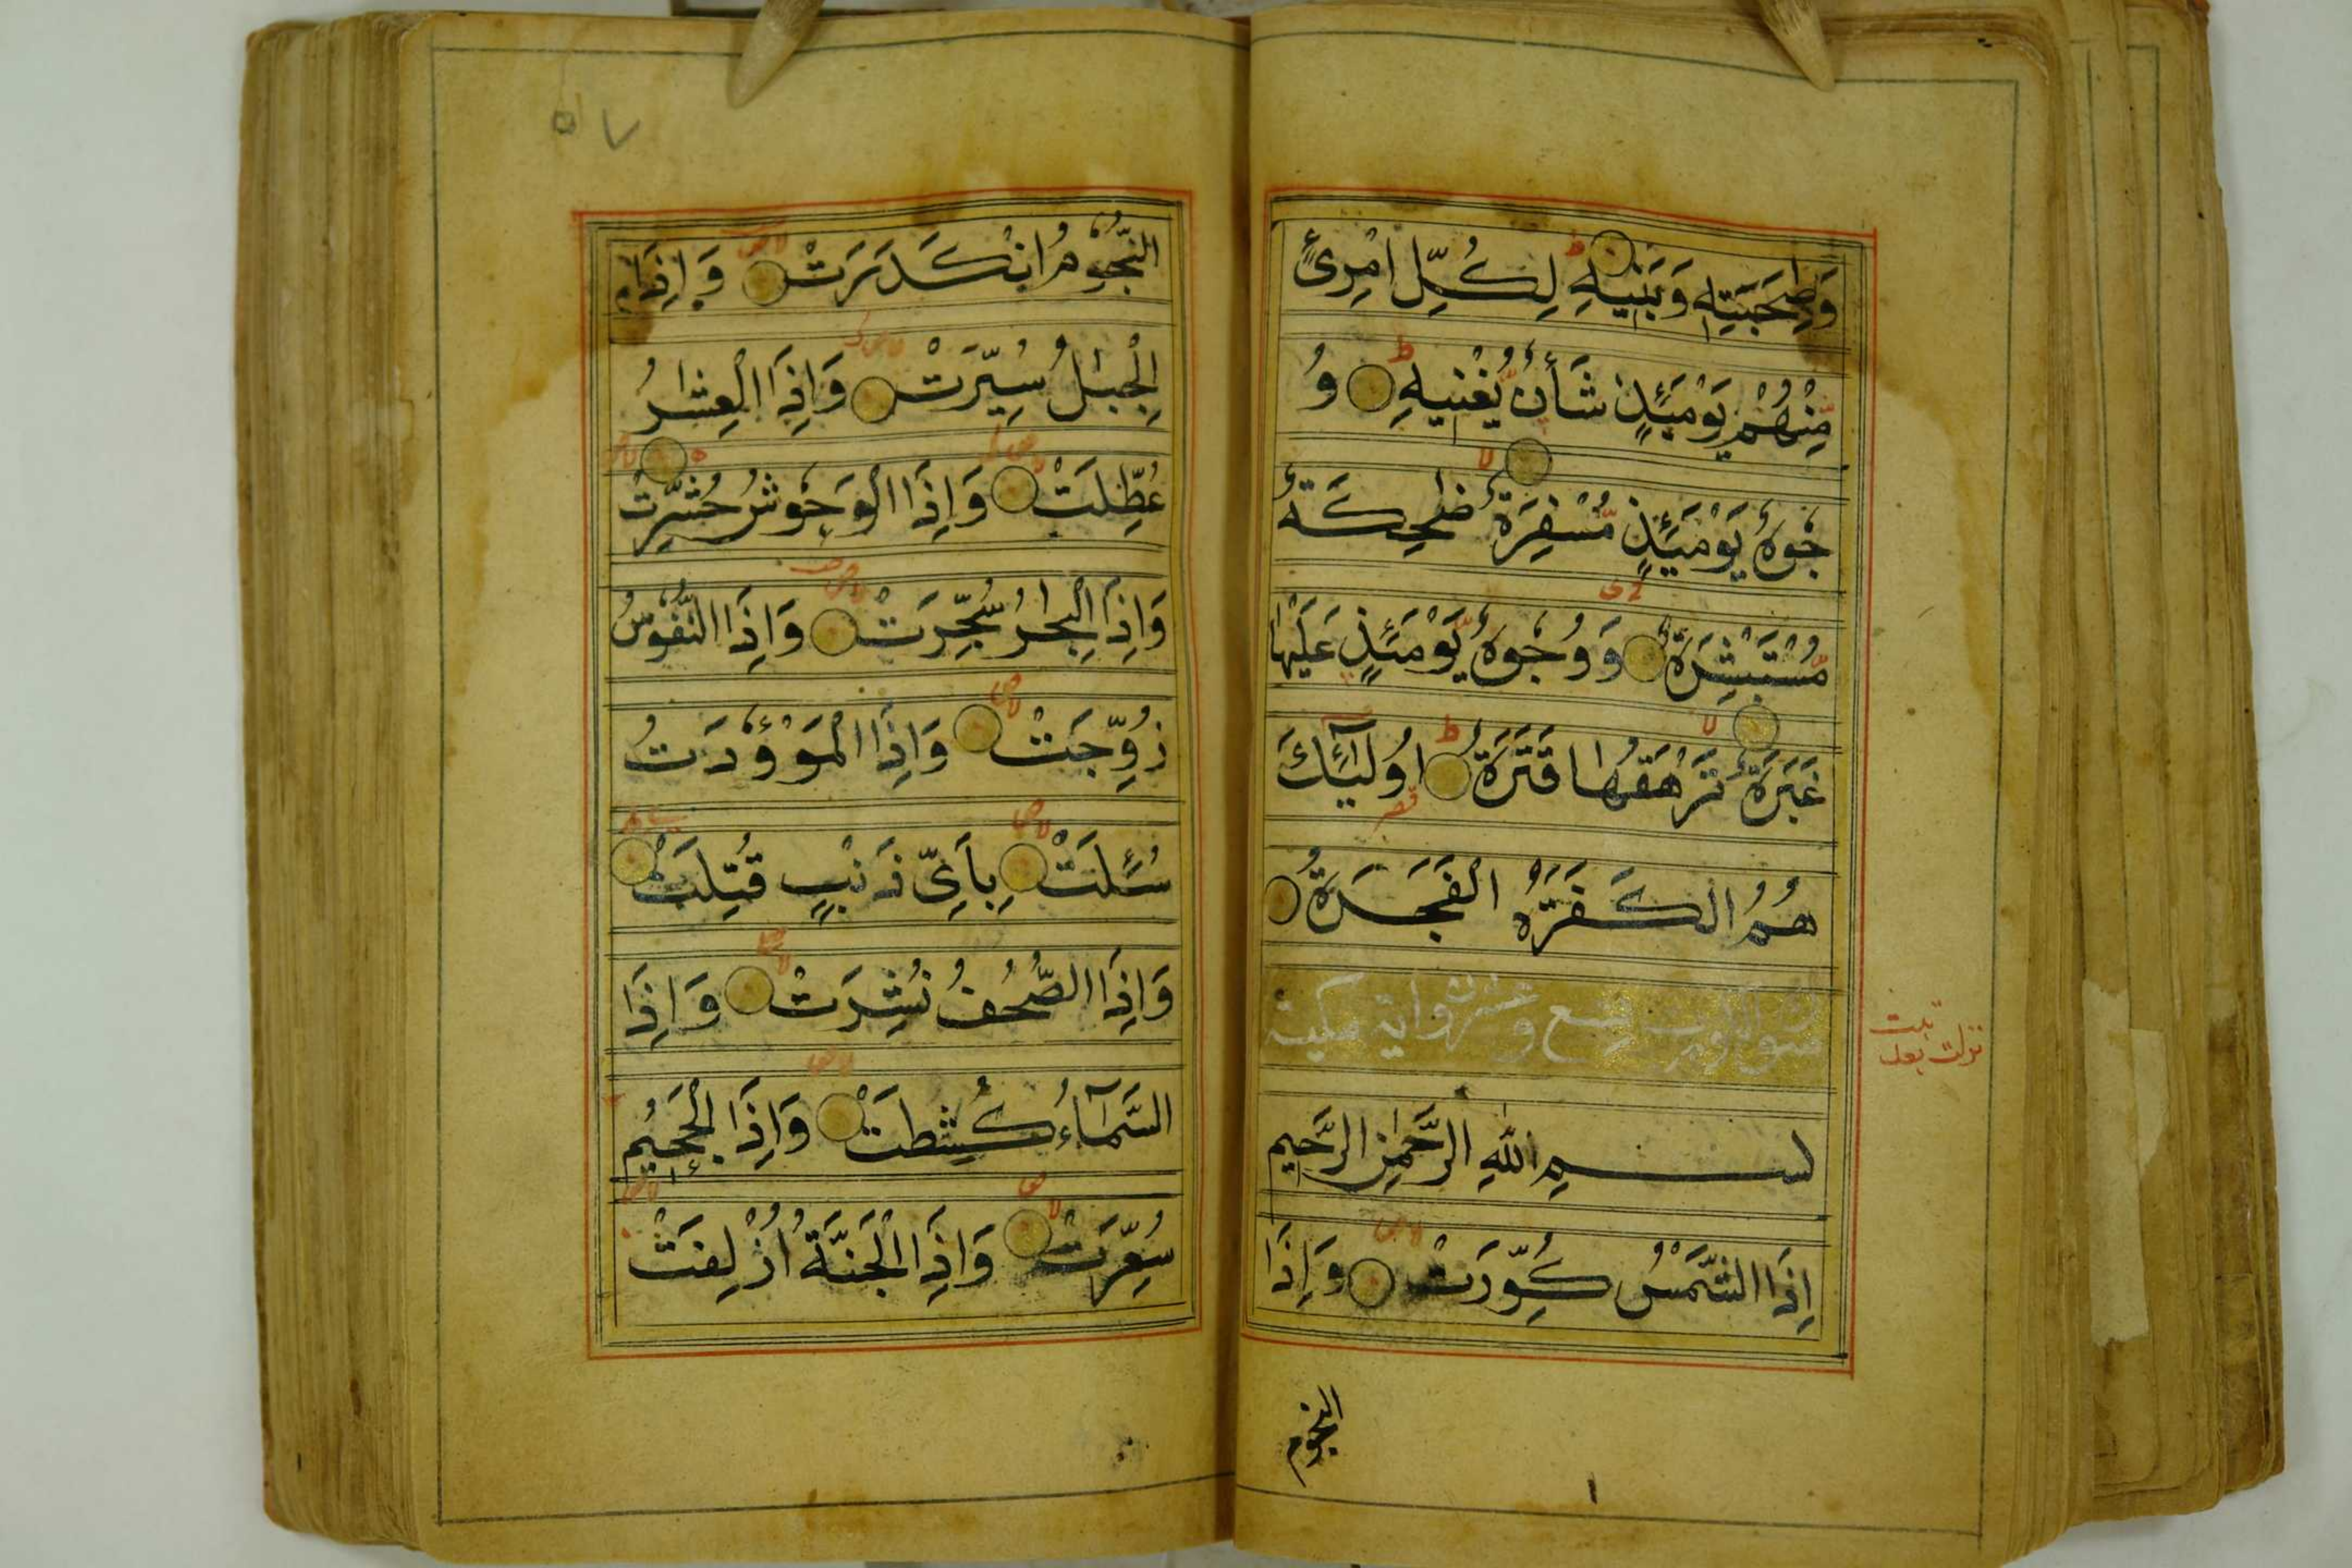 وَصَٰحِبَتِهِ وَبَنِيهِ لِكُلِّ امْرِئٍ
مِّنْهُمْ يَوْمَئِذٍ شَأْنٌ يُّغْنِيهِ وُ
جُوهٌ يَوْمَئِذٍ مُّسْفِرَةٌ ضَٰحِكَةٌ
مُّسْتَبْشِرَةٌ وَوُجُوهٌ يَّوْمَئِذٍ عَلَيْهَا
غَبَرَةٌ تَرْهَقُهَا قَتَرَةٌ اُولَٰٓئِكَ
هُمُ الْكَفَرَةُ الْفَجَرَةُ
وعشرون اية مكية
نزلت بعد تبت
بسم اللهِ الرَّحْمٰنِ الرَّحِيمِ
اِذَا الشَّمْسُ كُوِّرَتْ وَاِذَا
النجوم
٥٧
النُّجُومُ انْكَدَرَتْ وَاِذَا
الْجِبَٰلُ سُيِّرَتْ وَاِذَا الْعِشَٰرُ
عُطِّلَتْ وَاِذَا الْوُحُوشُ حُشِرَتْ
وَاِذَا الْبِحَٰرُ سُجِّرَتْ وَاِذَا النُّفُوسُ
زُوِّجَتْ وَاِذَا الْمَوْءٗدَتُ
سُئِلَتْ بِاَيِّ ذَنْبٍ قُتِلَتْ
وَاِذَا الصُّحُفُ نُشِرَتْ وَاِذَا
السَّمَآءُ كُشِطَتْ وَاِذَا الْجَحِيمُ
سُعِّرَتْ وَاِذَا الْجَنَّةُ اُزْلِفَتْ